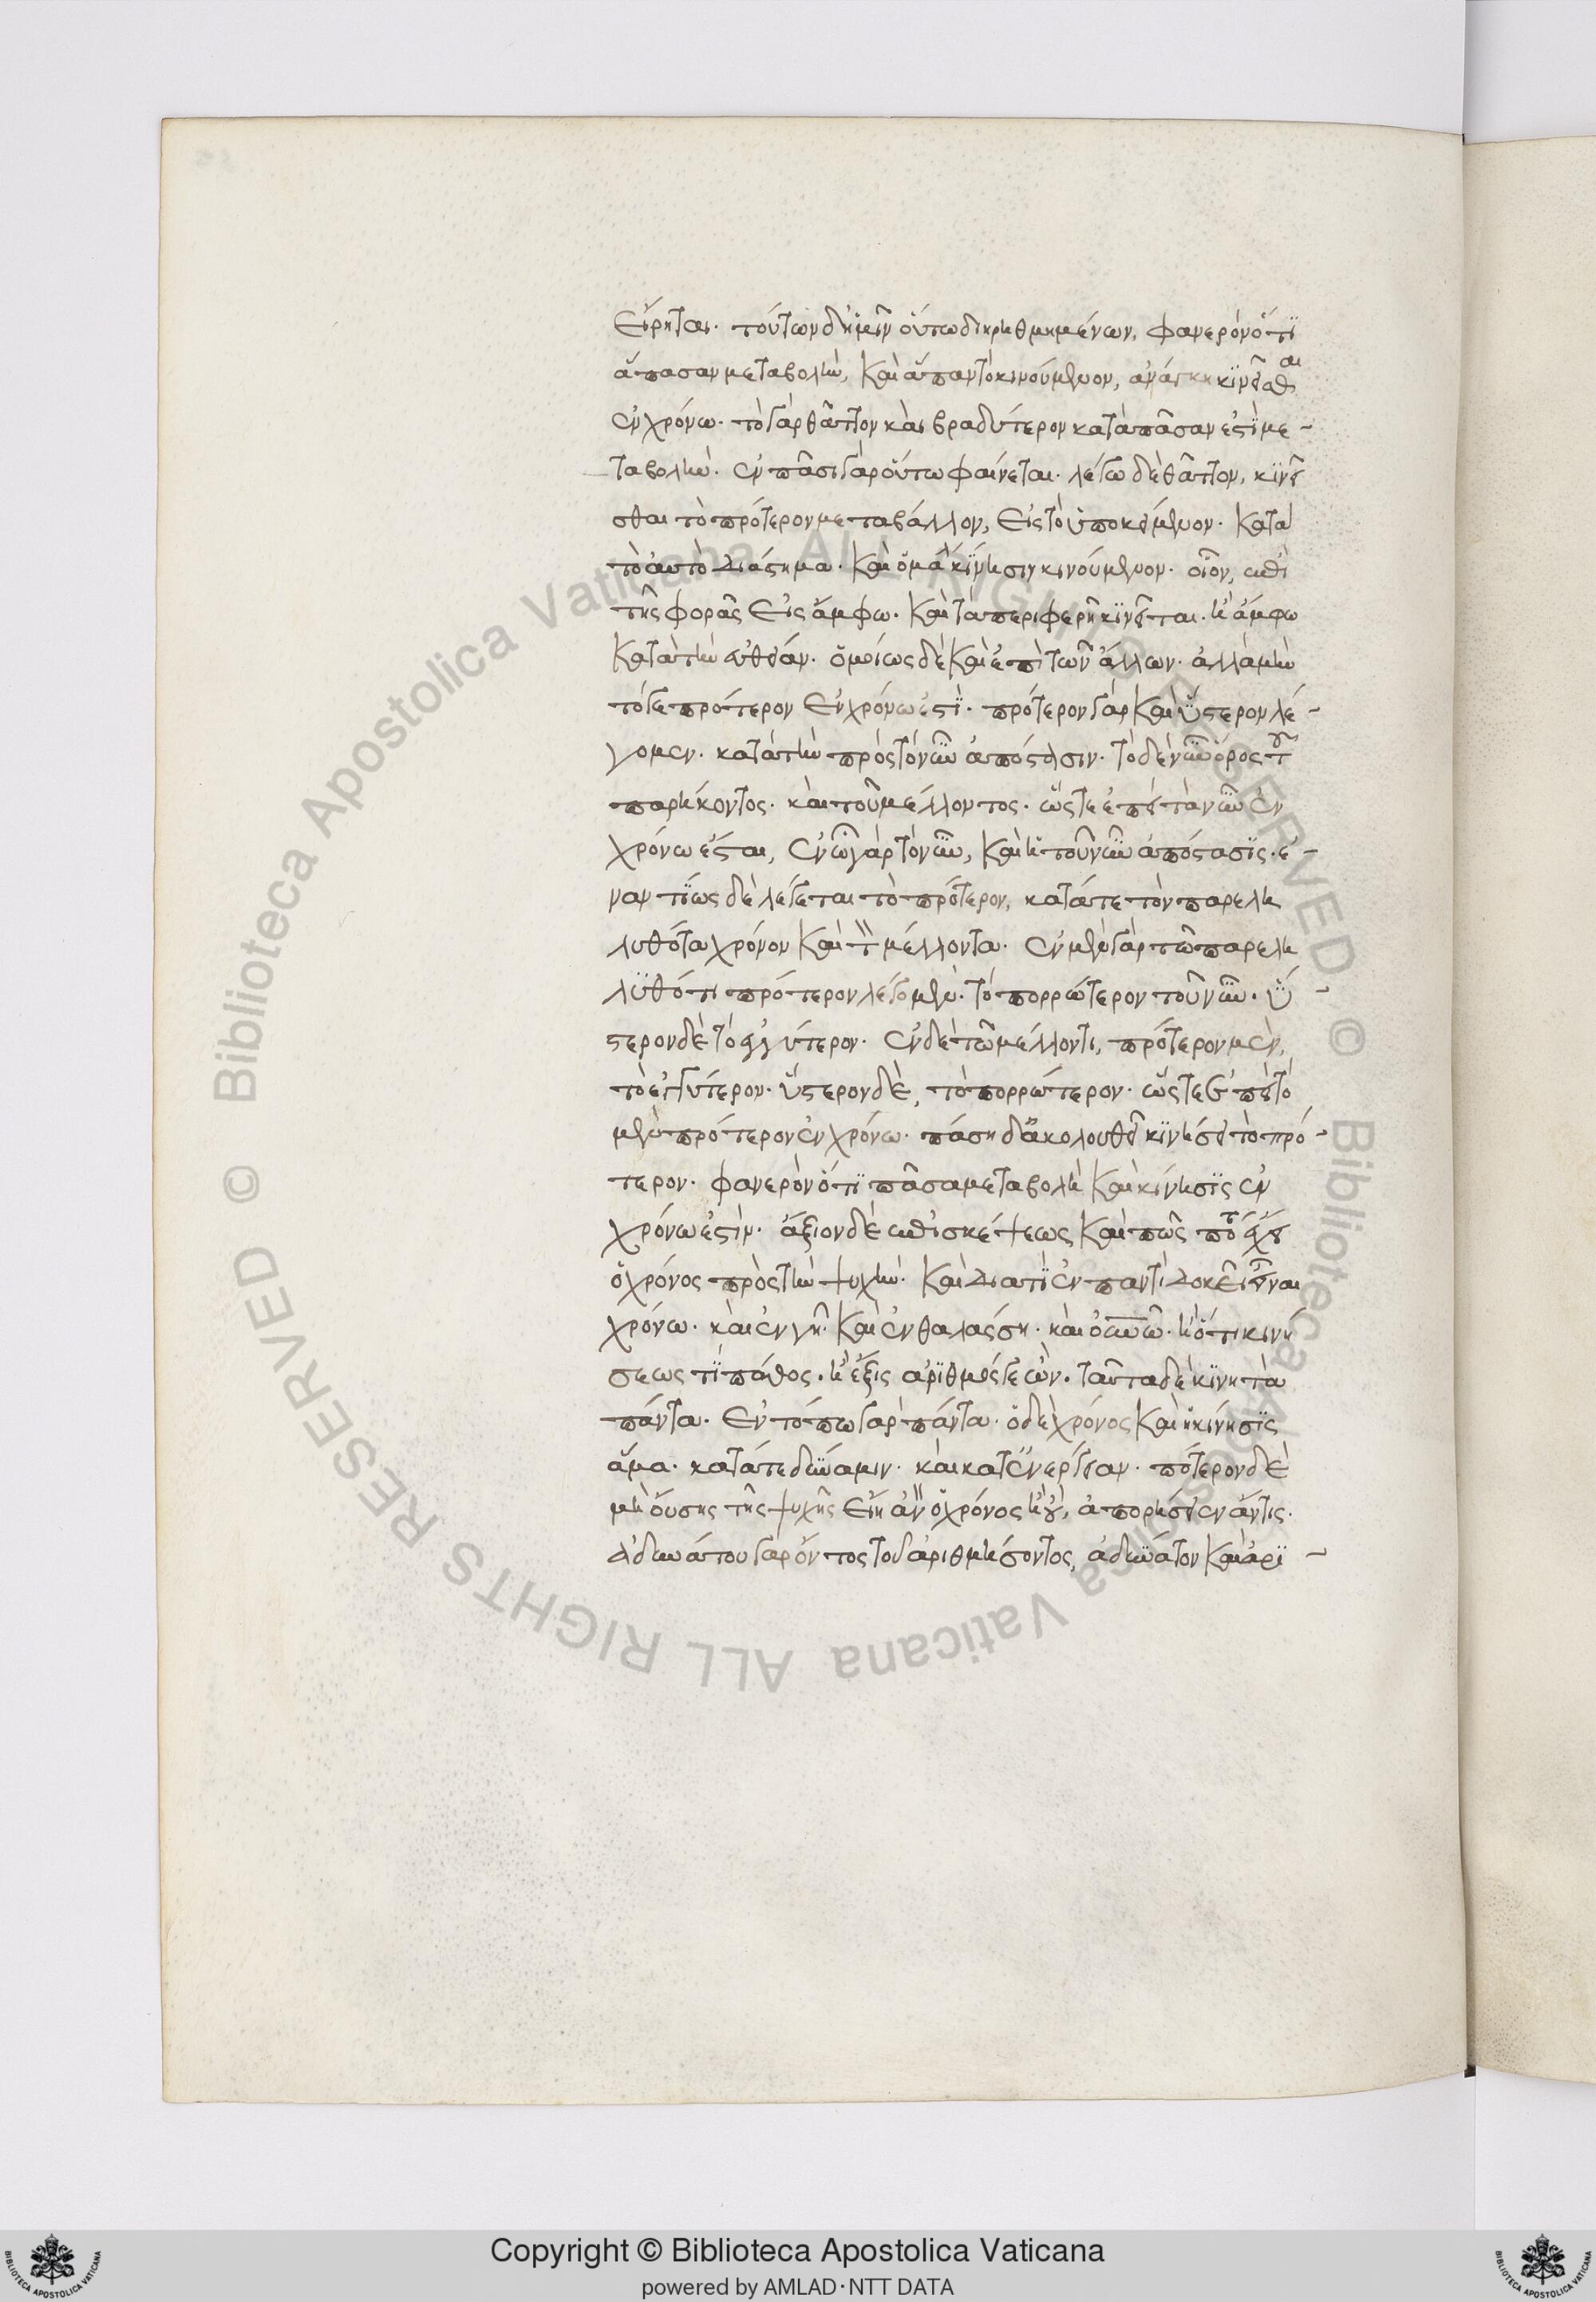 εἴρηται. τούτων δ' ἡμῖν οὕτω διηριθμημένων, φανερὸν ὅτι
ἅπασαν μεταβολὴν, καὶ ἅπαν τὸ κινούμενον, ἀνάγκη κινεῖσθαι
ἐν χρόνω. τὸ γὰρ θᾶττον καὶ βραδύτερον κατὰ πᾶσαν ἐστὶ με-
ταβολὴν. ἐν πᾶσι γὰρ οὕτω φαίνεται. λέγω δὲ θᾶττον, κινεῖ
σθαι τὸ πρότερον μεταβάλλον, εἰς τὸ ὑποκείμενον. κατὰ
τὸ αὐτὸ διάστημα. καὶ ὁμαλὴ κίνησιν κινούμενον. οἷον, ἐπὶ
τῆς φορᾶς εἰς ἄμφω. καὶ τὰ περιφερῆ κινεῖται. ἢ ἄμφω
κατὰ τὴν εὐθεῖαν. ὁμοίως δὲ καὶ ἐπὶ τῶν ἄλλων. ἀλλὰ μὴν
τό γε πρότερον ἐν χρόνω ἐστὶ. πρότερον γὰρ καὶ ὕστερον λέ-
γομεν. κατὰ τὴν πρὸς τὸ νῦν ἀπόστασιν. τὸ δὲ νῦν ὅρος τοῦ
παρήκοντος. καὶ τοῦ μέλλοντος. ὥστε ἐπεὶ τὰ νῦν ἐν
χρόνω ἐσται, ἐν ὧ γὰρ τὸ νῦν, καὶ ἡ τοῦ νῦν ἀπόστασις. ἐ-
ναντίως δὲ λέγεται τὸ πρότερον, κατά τε τὸν παρελη
λυθότα χρόνον καὶ τὸν μέλλοντα. ἐν μὲν γὰρ τῶ παρελη
λυθότι πρότερον λέγομεν. τὸ πορρώτερον τοῦ νῦν. ὕ-
στερον δὲ τὸ ἐγγύτερον. ἐν δὲ τῶ μέλλοντι, πρότερον μὲν,
τὸ ἐγγύτερον. ὕστερον δὲ, τὸ πορρώτερον. ὥστε ἐπεὶ τὸ
μὲν πρότερον ἐν χρόνω. πάση δ' ἀκολουθεῖ κινήσει τὸ πρό-
τερον. φανερὸν ὅτι πᾶσα μεταβολὴ καὶ κίνησις ἐν
χρόνω ἐστὶν. ἄξιον δὲ ἐπισκέψεως καὶ πῶς ποτὲ ἔχει
ὁ χρόνος πρὸς τὴν ψυχὴν. καὶ διατί ἐν παντὶ δοκεῖ εἶναι
χρόνω. καὶ ἐν γῆ. καὶ ἐν θαλάσση. καὶ οὐνῶ. ἢ ὅτι κινή
σεως τί πάθος. ἢ ἕξις ἀριθμός γε ὢν. ταῦτα δὲ κινητὰ
πάντα. ἐν τόπω γὰρ πάντα. ὁ δὲ χρόνος καὶ ἡ κίνησις
ἅμα. κατά τε δύναμιν. καὶ κατ' ἐνέργειαν. πότερον δὲ
μὴ οὔσης τῆς ψυχῆς εἴη ἂν ὁ χρόνος ἢ οὐ, ἀπορήσειεν ἄν τις.
ἀδυνάτου γὰρ ὄντος τοῦ ἀριθμήσοντος, ἀδύνατον καὶ ἀρι-
Copyright © Biblioteca Apostolica Vaticana
powered by AMLAD·NTT DATA